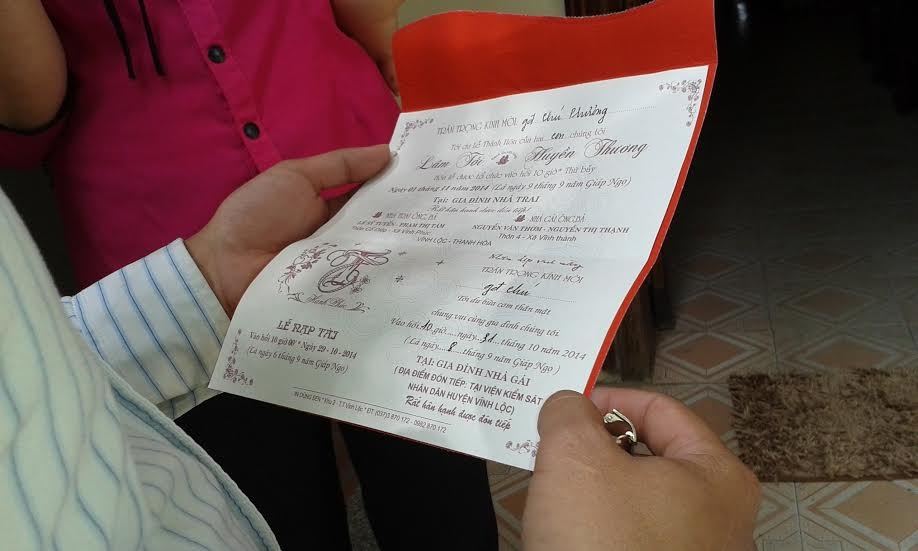 TRÂN TRỌNG KÍNH MỜI: gđ Chú Phương
Tới dự lễ Thành Hôn của hai con chúng tôi
Lâm Tới Huyền Thương
Hôn lễ được tổ chức vào hồi 10 giờ* Thứ bảy
Ngày 01 tháng 11 năm 2014 (Là ngày 9 tháng 9 năm Giáp Ngọ)
Tại: GIA ĐÌNH NHÀ TRAI
Rất hân hạnh được đón tiếp!
NHÀ TRAI ÔNG BÀ
LÊ SỸ TUYỂN - PHẠM THỊ TÁM
Xã Vĩnh Phúc
NHÀ GÁI ÔNG BÀ
NGUYỄN VĂN THƠM - NGUYỄN THỊ THẠNH
Thôn 4 - Xã Vĩnh thành
VĨNH LỘC - THANH HÓA
Hạnh Phúc
LỄ RẠP TẠI
Vào hồi 16 giờ 00' * Ngày 29 - 10 - 2014
(Là ngày 6 tháng 9 năm Giáp Ngọ)
Nhân dịp vui này
TRÂN TRỌNG KÍNH MỜI
gđ chú
Tới dự bữa cơm thân mật
chung vui cùng gia đình chúng tôi.
Vào hồi 10 giờ ngày 31 tháng 10 năm 2014
(Là ngày 8 tháng 9 năm Giáp Ngọ)
TẠI: GIA ĐÌNH NHÀ GÁI
( ĐỊA ĐIỂM ĐÓN TIẾP: TẠI VIỆN KIỂM SÁT
NHÂN DÂN HUYỆN VĨNH LỘC)
Rất hân hạnh được đón tiếp
IN DŨNG ĐEN * Khu 2 - TT Vĩnh Lộc * ĐT: (037)3 870 172 - 0982 870 172